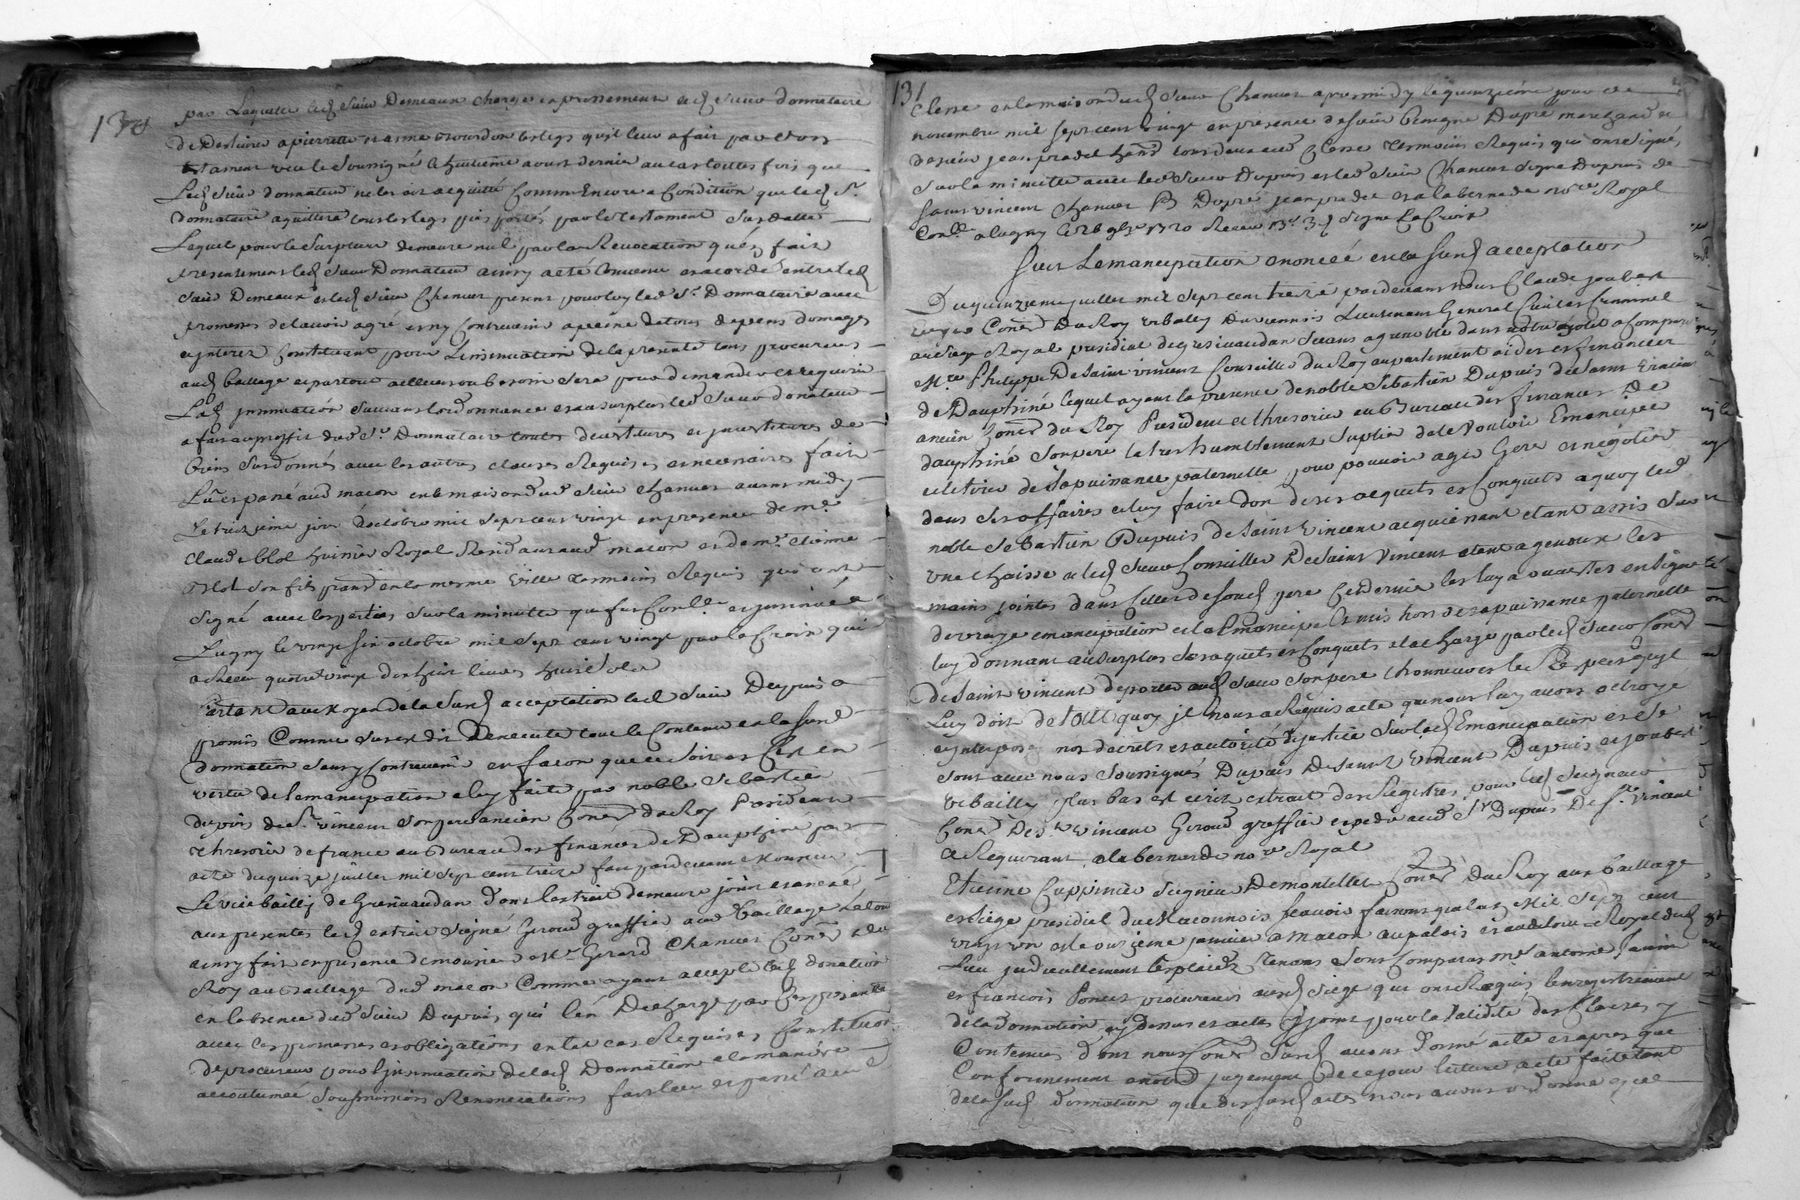 130
par Laquelle led Sieur Demeaux charge expressement led Sieur donnataire
de deslivrer a pierrette et anne bourdon les legs qu'il leur a fait par etre
testament receu le soussigné le huitieme aoust dernier au cas toutes fois que
Led Sieur donnateur ne les ait acquitté Comm Encore a Condition que led Sr
donnataire aquittera tous les legs pies portés par led testament Susdatte
Lequel pour le Surplus demeure nul par la Revocation qu'en fait
presentement led Sieur Donnateur ainsy a eté Convenu et acordé entre led
Sieur Demeaux et led Sieur Chanuet prenant pour luy led Sr Donnataire avec
promesses de l'avoir agré et n'y Contrevenir a peine de tous depens domages
et interez Constituant pour L'insinuation de la presente tous procureurs
aud bailliage et par tout ailleurs ou besoin Sera pour demander et requerir
Lad insinuation Suivant l'ordonnance et au surplus led Sieur donateur
a fait au proffit dud Sr Donnataire toutes devestitures et investitures de
biens Susdonnés avec les autres clauses Requises et necessaires fait
Lu et passé aud macon en la maison dud Sieur Chanuet avant midy
Le treizieme jour d'octobre mil Sept cent vingt en presence de me
Claude blol huissier Royal Resid aud macon et de mr Etienne
blol Son fils prat en la mesme Ville temoins Requis qui ont
Signé avec les parties Sur la minutte qui fut Conllee et insinuée a
Lugny le vingt six octobre mil Sept cent vingt par la Croix qui
a Receu quatre vingt dix huit livres huit Sols
Partant au moyen de la Susd acceptation led Sieur Depuis a
promis Comme Susest dit D'executer tout le Contenu en la Susd
donnation Sans y Contrevenir en facon que ce Soit et C'est en
vertu de l'emancipation a luy faite par noble Sebastien
dupuis de St vincent Son pere ancien Coner du Roy President
thresorier de france au bureau des finances de Dauphiné par
acte du quinze juillet mil Sept cent treize fait pardevant monsieur
Le vice bailly de Graisivaudan dont l'extrait demeure joint et annexé
aux presentes led extrait Signé Giroud greffier aud bailliage Le tout
ainsy fait en presence de monsieur Me Gerard Chanuet Coner du
Roy au bailliage dud macon Comme ayant accepté lad donation
en l'absence dud Sieur Dupuis qui l'en Decharge par ces presentes
avec les promesses et obligations en tel cas Requises Constituant
de procureur pour l'insinuation de lad Donnation a la maniere
accoutumée Soumissions Renonciations fait leu et passé aud
131
Clesse en la maison dud Sieur Chanuet apres midy le quinzieme jour de
novembre mil Sept cent vingt en presence de Sieur benigne Dupré marchand et
de Sieur jean pradel tous deux aud Clesse temoins Requis qui ont Signé
Sur la minutte avec led Sieur Dupuis et led Sieur Chanuet Signé Dupuis de
Saint vincent Chanuet B Dupré jean pradel et alabernarde nore Royal
Conlle a lugny le 26 9bre 1720 Receu Signe LaCroix
Suit Lemancipation enoncée en la Susd acceptation
Du quinzieme juillet mil Sept cent treize pardevant nous Claude joubert
Coner Du Roy vibally du viennois Lieutenant General Civil et Criminel
au siege Royal presidial de gresivaudan Seant a grenoble dans a Comparu
Mre Philippe De Saint vincent Conseiller du Roy au parlement aides et finances
de Dauphiné lequel ayant la presence de noble Sebastien Dupuis de Saint vincent
ancien Coner du Roy President et thresorier au Bureau des finances de
dauphiné Son pere la tres humblement Suplié de le vouloir Emanciper
et le tirer de Sa puissance paternelle pour pouvoir agir Gerer et negotier
dans Ses affaires et luy faire don de ses acquets et Conquets a quoy led
noble Sebastien Dupuis de Saint vincent acquiessant etant assis Sur
une chaise et led Sieur Conseiller De Saint vincent etant a genoux les
mains jointes dans Celles de Sond pere Ce dernier les luy a ouvertes en Signe
de vraye emancipation et la Emancipé et mis hors de sa puissance paternelle
luy donnant au Surplus Ses aquets et Conquets a la charge par led Sieur Coner
de Saint vincent de porter aud Sieur Son pere l'honneur et le Respect qu'il
Luy doit de tout quoy il nous a Requis acte que nous luy avons octroyé
et interposé nos decrets et autorité de justice Sur lad Emancipation et Se
sont avec nous Soussignés Dupuis De Saint Vincent Dupuis et joubert
vibailly plus bas est ecrit extrait des Registres pour led Seigneur
Coner De St vincent Giroud greffier expedié aud Sr Dupuis De St vincent
Ce Requerant alabernarde nore Royal
Etienne Cuppinier Seigneur Demontillet Coner Du Roy aux bailliage
et Siege presidial du Maconnois Scavoir faisons que l'an Mil Sept cent
vingt un et le onzieme janvier a Macon au palais et auditoire Royal dud
Lieu judiciellement les plaids Tenans Sont Comparus me antoine
et francois Poncet procureurs aud Siege qui ont Requis l'enregistrement
de la donnation cy dessus et actes y joints pour la Validité des Clauses y
Contenues dont nous Coner Susd avons donné acte et apres que
Conformement a notre jugement de ce jour lecture a eté faite tant
de la Susd donnation que des Susd actes nous avons ordonné que